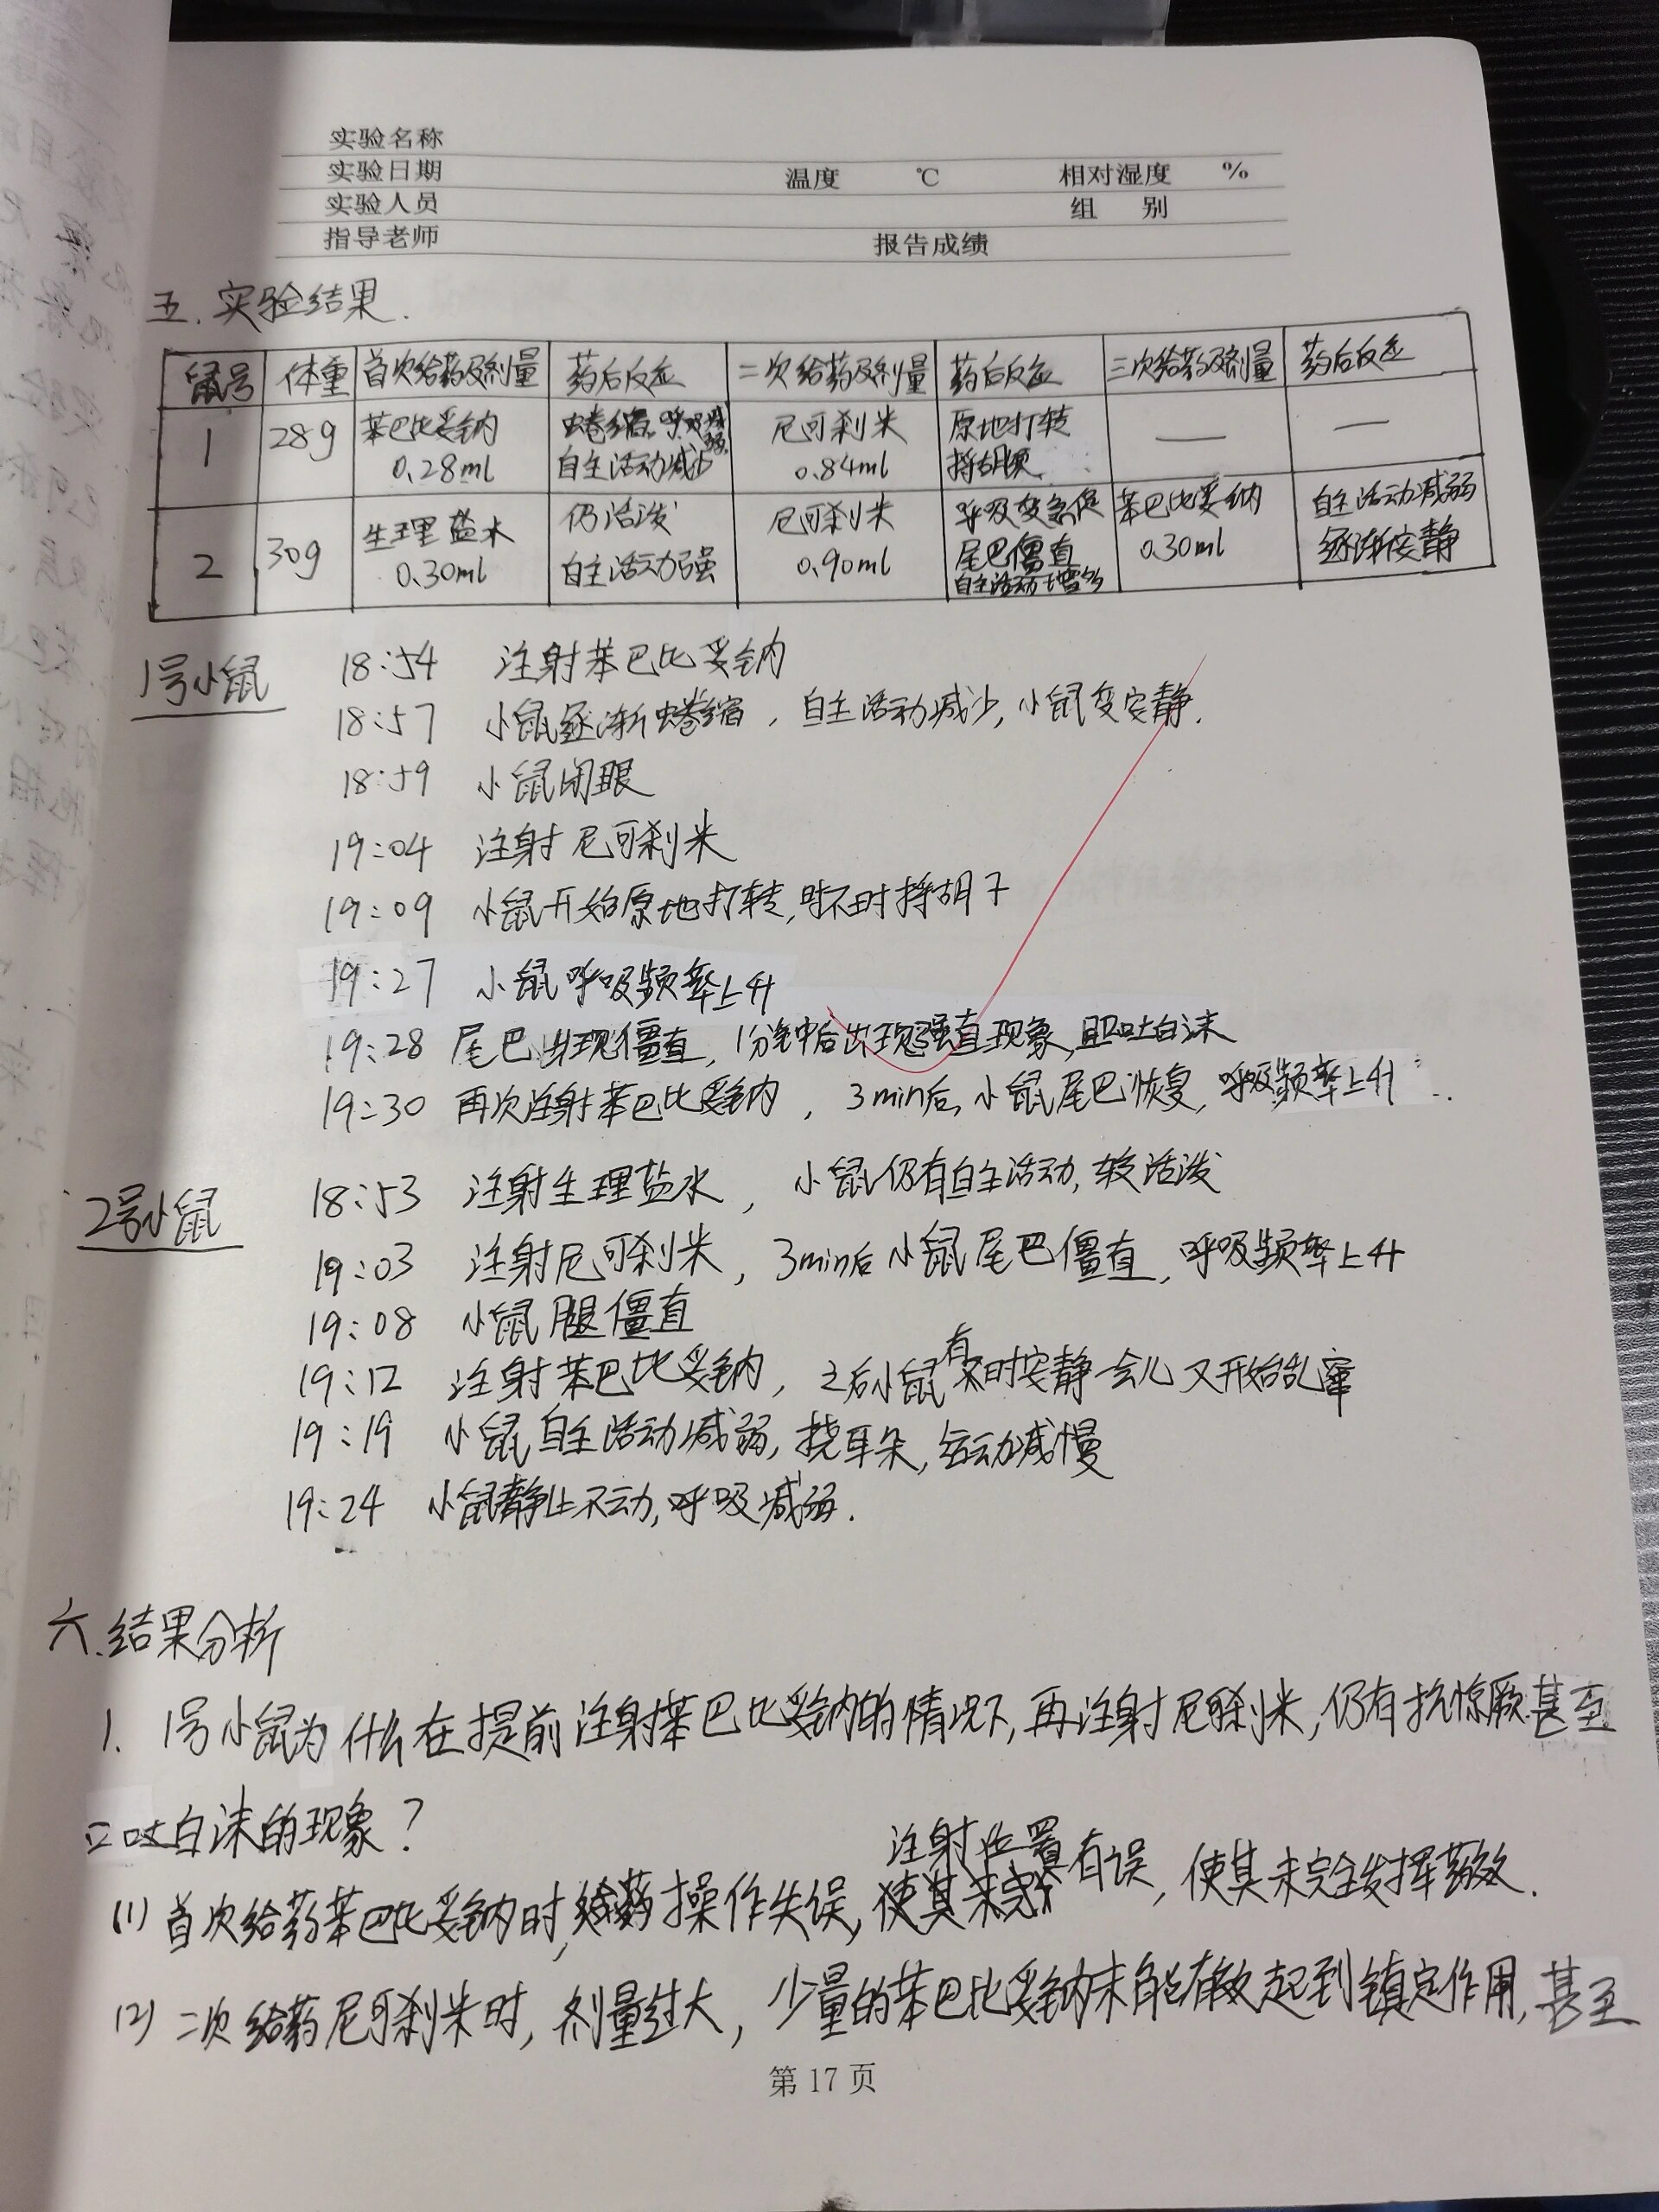 实验名称
实验日期 温度 ℃ 相对湿度 %
实验人员 组 别
指导老师 报告成绩
五. 实验结果.
鼠号 体重 首次给药及剂量 药后反应 二次给药及剂量 药后反应 三次给药及剂量 药后反应
1 28g 苯巴比妥钠 0.28ml 蜷缩,呼吸减弱, 自主活动减少 尼可刹米 0.84ml 原地打转 捋胡须 — —
2 30g 生理盐水 0.30ml 仍活泼 自主活动强 尼可刹米 0.90ml 呼吸变急促 尾巴僵直 自主活动增多 苯巴比妥纳 0.30ml 自主活动减弱 逐渐安静
1号小鼠 18:54 注射苯巴比妥钠
18:57 小鼠逐渐蜷缩,自主活动减少,小鼠变安静.
18:59 小鼠闭眼
19:04 注射尼可刹米
19:09 小鼠开始原地打转,时不时捋胡子
19:27 小鼠呼吸频率上升
19:28 尾巴出现僵直,1分钟后出现强直现象,且口吐白沫
19:30 再次注射苯巴比妥钠,3min后,小鼠尾巴恢复,呼吸频率上升
2号小鼠 18:53 注射生理盐水,小鼠仍有自主活动,较活泼
19:03 注射尼可刹米,3min后小鼠尾巴僵直,呼吸频率上升
19:08 小鼠腿僵直
19:12 注射苯巴比妥钠,之后小鼠有时安静一会儿又开始乱窜
19:19 小鼠自主活动减弱,挠耳朵,运动减慢
19:24 小鼠静止不动,呼吸减弱.
六.结果分析
1. 1号小鼠为什么在提前注射苯巴比妥钠的情况下,再注射尼可刹米,仍有抗惊厥甚至
口吐白沫的现象?
(1) 首次给药苯巴比妥钠时,操作失误,注射位置有误,使其未完全发挥药效.
(2) 二次给药尼可刹米时,剂量过大,少量的苯巴比妥钠未能有效起到镇定作用,甚至
第 17 页